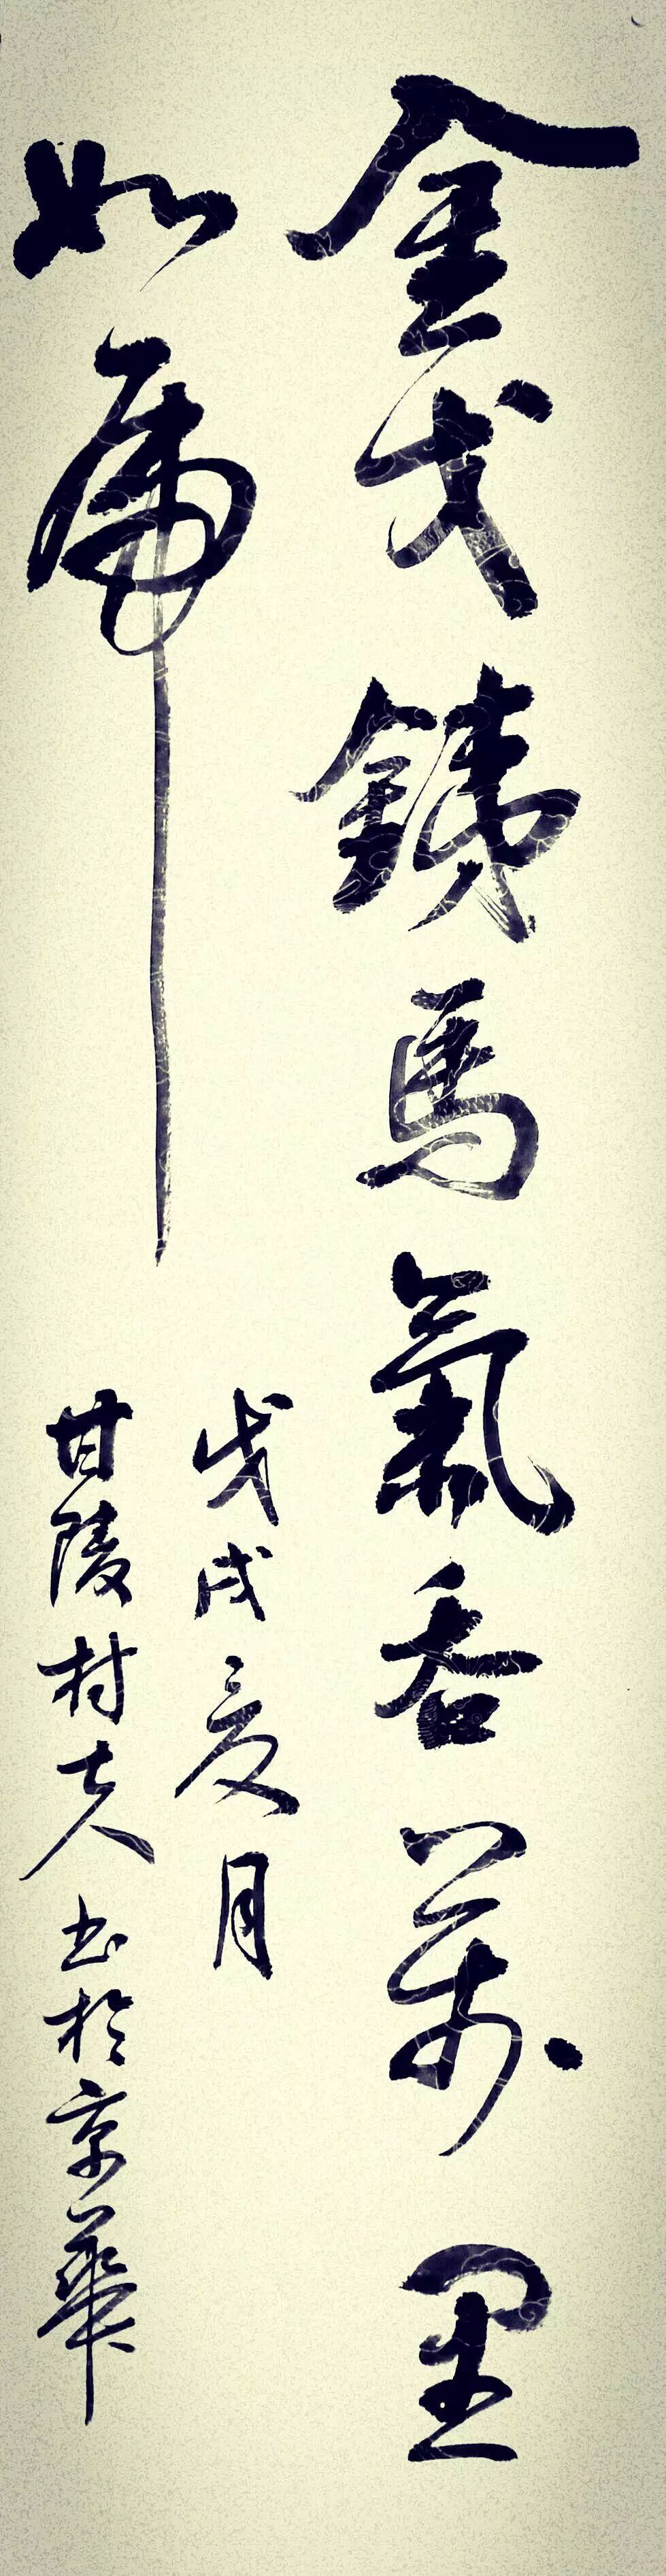 金戈鐵馬氣吞萬里
如虎
戊戌夏月
甘陵村夫书於京華